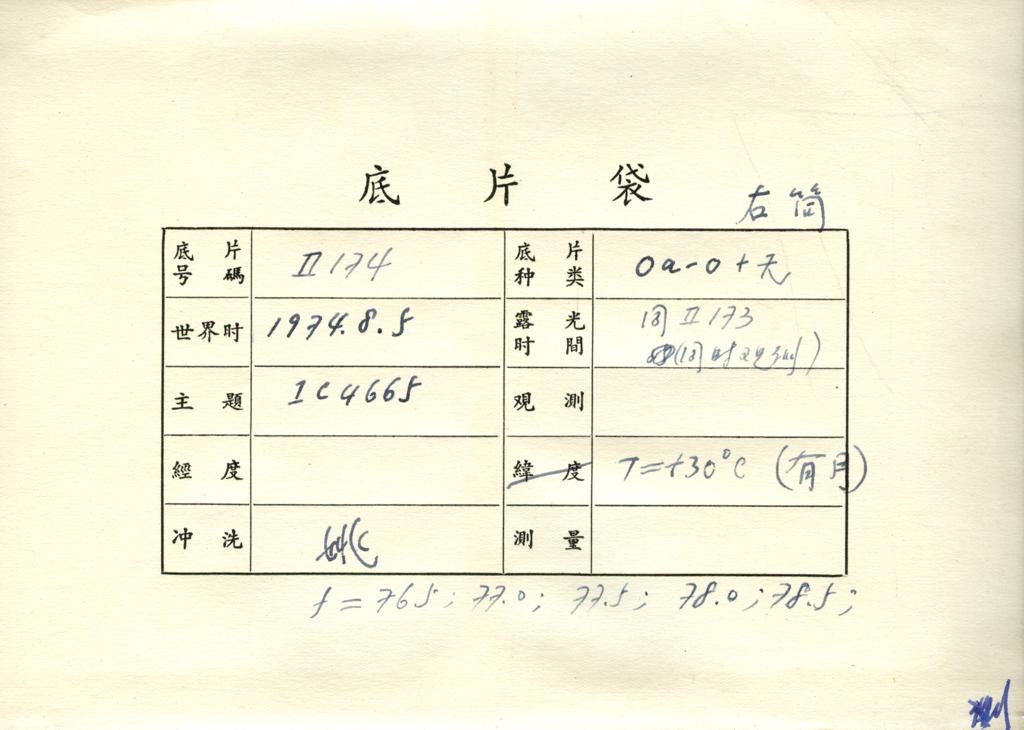 底片袋
右筒
底片号碼 II174 底片种类 Oa-O+无
世界时 1974.8.5 露光时間 同II173
(同时观测)
主題 IC4665 观測
經度 緯度 T=+30°C (有月)
冲洗 測量
f=765; 77.0; 77.5; 78.0; 78.5;